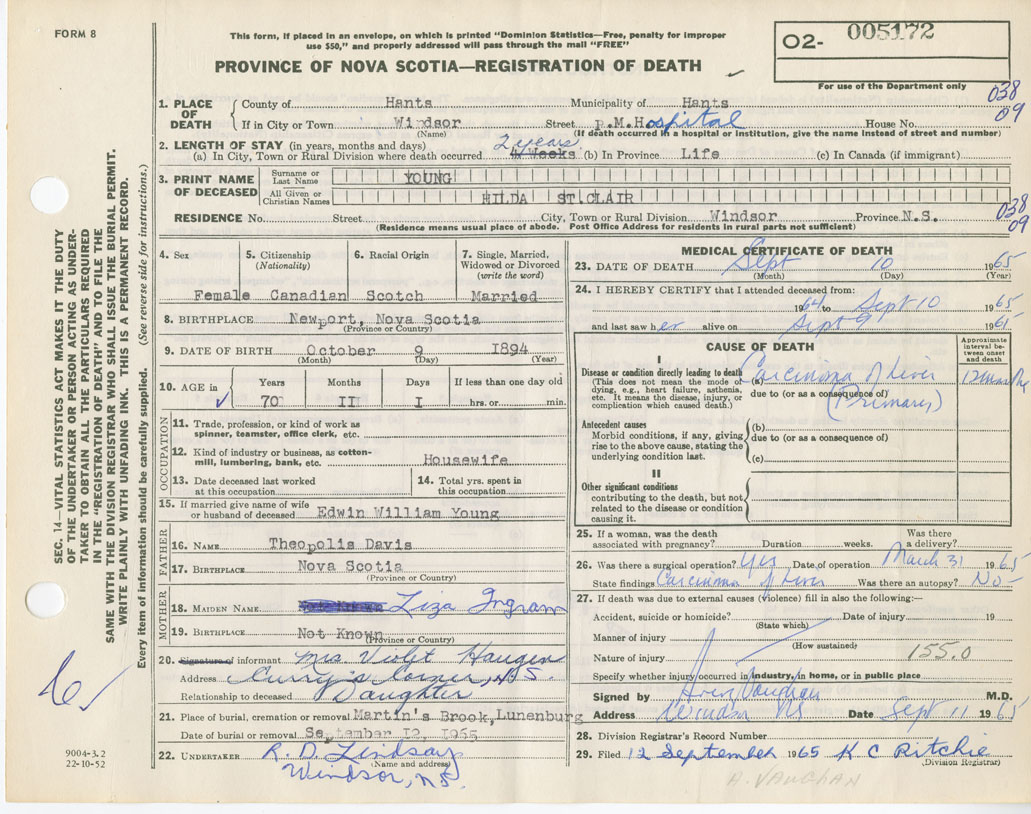 FORM 8
This form, if placed in an envelope, on which is printed "Dominion Statistics—Free, penalty for improper
use $50," and properly addressed will pass through the mail "FREE"
PROVINCE OF NOVA SCOTIA—REGISTRATION OF DEATH
O2- 005172
For use of the Department only
038
09
1. PLACE OF DEATH
County of Hants Municipality of Hants
If in City or Town Windsor Street P.M.Hospital House No.
(Name) (If death occurred in a hospital or institution, give the name instead of street and number)
2. LENGTH OF STAY (in years, months and days)
2 years
(a) In City, Town or Rural Division where death occurred 4 Weeks (b) In Province Life (c) In Canada (if immigrant)
3. PRINT NAME OF DECEASED
Surname or Last Name YOUNG
All Given or Christian Names HILDA ST.CLAIR
038
09
RESIDENCE No. Street City, Town or Rural Division Windsor Province N.S.
(Residence means usual place of abode. Post Office Address for residents in rural parts not sufficient)
4. Sex Female
5. Citizenship (Nationality) Canadian
6. Racial Origin Scotch
7. Single, Married, Widowed or Divorced (write the word) Married
8. BIRTHPLACE Newport, Nova Scotia
(Province or Country)
9. DATE OF BIRTH October 9 1894
(Month) (Day) (Year)
10. AGE in Years Months Days If less than one day old
70 II I hrs. or min.
OCCUPATION
11. Trade, profession, or kind of work as
spinner, teamster, office clerk, etc.
12. Kind of industry or business, as cotton-
mill, lumbering, bank, etc. Housewife
13. Date deceased last worked
at this occupation
14. Total yrs. spent in
this occupation
15. If married give name of wife
or husband of deceased Edwin William Young
FATHER
16. NAME Theopolis Davis
17. BIRTHPLACE Nova Scotia
(Province or Country)
MOTHER
18. MAIDEN NAME Liza Ingram
19. BIRTHPLACE Not Known
(Province or Country)
20. Signature of informant Mrs. Violet Haugen
Address Curry's Corner, N.S.
Relationship to deceased Daughter
21. Place of burial, cremation or removal Martin's Brook,Lunenburg
Date of burial or removal September 12, 1965
22. UNDERTAKER R. D. Lindsay
(Name and address)
Windsor, N.S.
MEDICAL CERTIFICATE OF DEATH
23. DATE OF DEATH Sept 10 1965
(Month) (Day)
24. I HEREBY CERTIFY that I attended deceased from:
1964 to Sept 10 1965
and last saw her alive on Sept 9 1965
CAUSE OF DEATH
Approximate interval between onset and death
I
Disease or condition directly leading to death
(This does not mean the mode of
dying, e.g., heart failure, asthenia,
etc. It means the disease, injury, or
complication which caused death.)
(a) Carcinoma of Liver
due to (or as a consequence of)
(Primary)
Antecedent causes
Morbid conditions, if any, giving
rise to the above cause, stating the
underlying condition last.
(b)
due to (or as a consequence of)
(c)
II
Other significant conditions
contributing to the death, but not
related to the disease or condition
causing it.
25. If a woman, was the death
associated with pregnancy? Duration weeks. Was there
a delivery?
26. Was there a surgical operation? Yes Date of operation March 31 1965
State findings Carcinoma of Liver Was there an autopsy? No
27. If death was due to external causes (violence) fill in also the following:—
Accident, suicide or homicide? Date of injury 19
(State which)
Manner of injury
(How sustained)
Nature of injury 155.0
Specify whether injury occurred in industry, in home, or in public place
Signed by Vaughan M.D.
Address Windsor NS Date Sept 11 1965
28. Division Registrar's Record Number
29. Filed 12 September 1965 H C Ritchie
(Division Registrar)
A. VAUGHAN
SEC. 14—VITAL STATISTICS ACT MAKES IT THE DUTY
OF THE UNDERTAKER OR PERSON ACTING AS UNDER-
TAKER TO OBTAIN ALL THE PARTICULARS REQUIRED
IN THE "REGISTRATION OF DEATH" AND TO FILE THE
SAME WITH THE DIVISION REGISTRAR WHO SHALL ISSUE THE BURIAL PERMIT.
WRITE PLAINLY WITH UNFADING INK. THIS IS A PERMANENT RECORD.
Every item of information should be carefully supplied. (See reverse side for instructions.)
9004-3.2
22-10-52